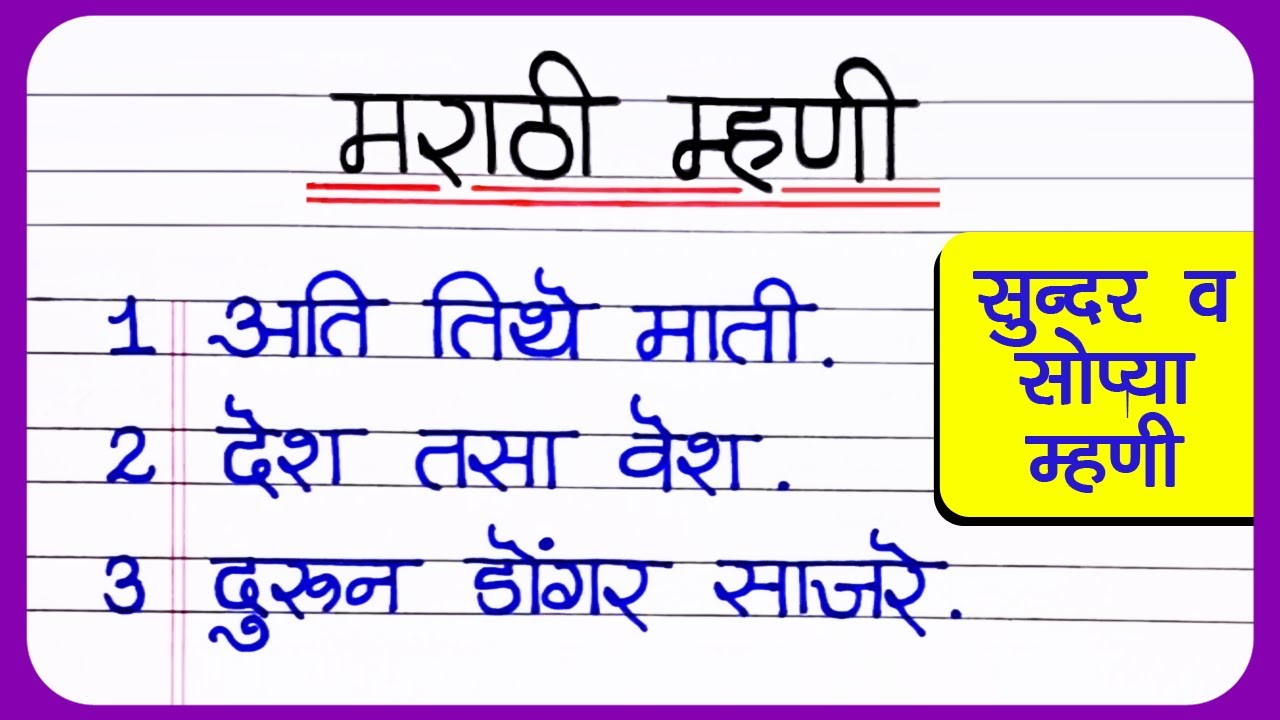 मराठी म्हणी
1 अति तिथे माती.
2 देश तसा वेश.
3 दुरून डोंगर साजरे.
सुन्दर व
सोप्या
म्हणी